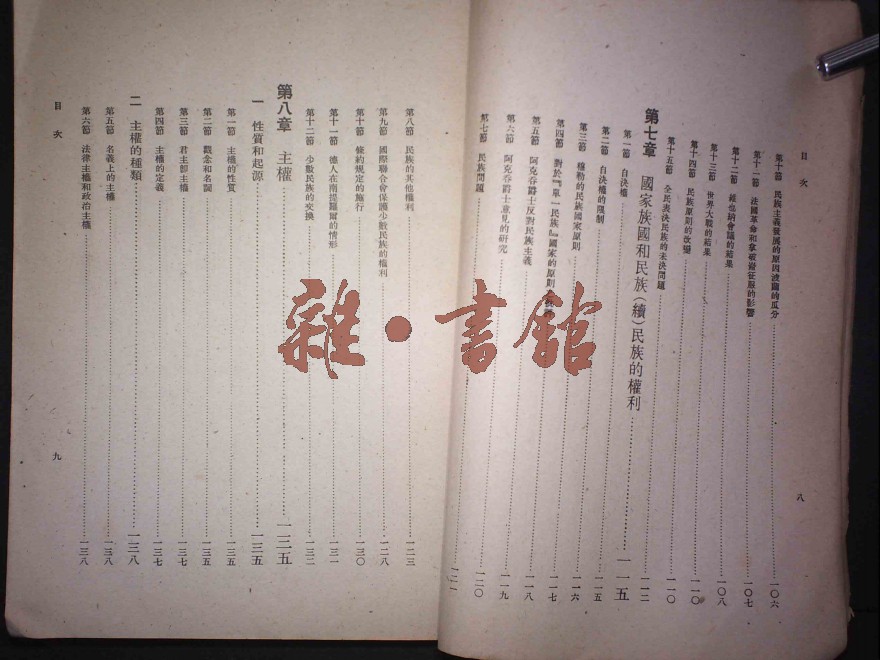 目次
第十節 民族主義發展的原因波蘭的瓜分 一〇六
第十一節 法國革命和拿破崙征服的影響 一〇七
第十二節 維也納會議的結果 一〇八
第十三節 世界大戰的結果
第十四節 民族原則的改變 一一〇
第十五節 全民表決民族的未決問題 一一二
第七章 國家族國和民族(續)民族的權利 一一五
第一節 自決權
第二節 自決權的限制 一一五
第三節 穆勒的民族國家原則 一一六
第四節 對於『單一民族』國家的原則 一一七
第五節 阿克吞爵士反對民族主義 一一八
第六節 阿克吞爵士意見的研究 一一九
第七節 民族問題 一二〇
八
第八節 民族的其他權利 一二三
第九節 國際聯合會保護少數民族的權利 一二八
第十節 條約規定的施行 一三〇
第十一節 德人在南提羅爾的情形 一三一
第十二節 少數民族的交換 一三二
第八章 主權 一三五
一 性質和起源 一三五
第一節 主權的性質 一三五
第二節 觀念和名詞 一三五
第三節 君主卽主權 一三七
第四節 主權的定義 一三七
二 主權的種類 一三八
第五節 名義上的主權 一三八
第六節 法律主權和政治主權 一三八
目次
九
雜·書館